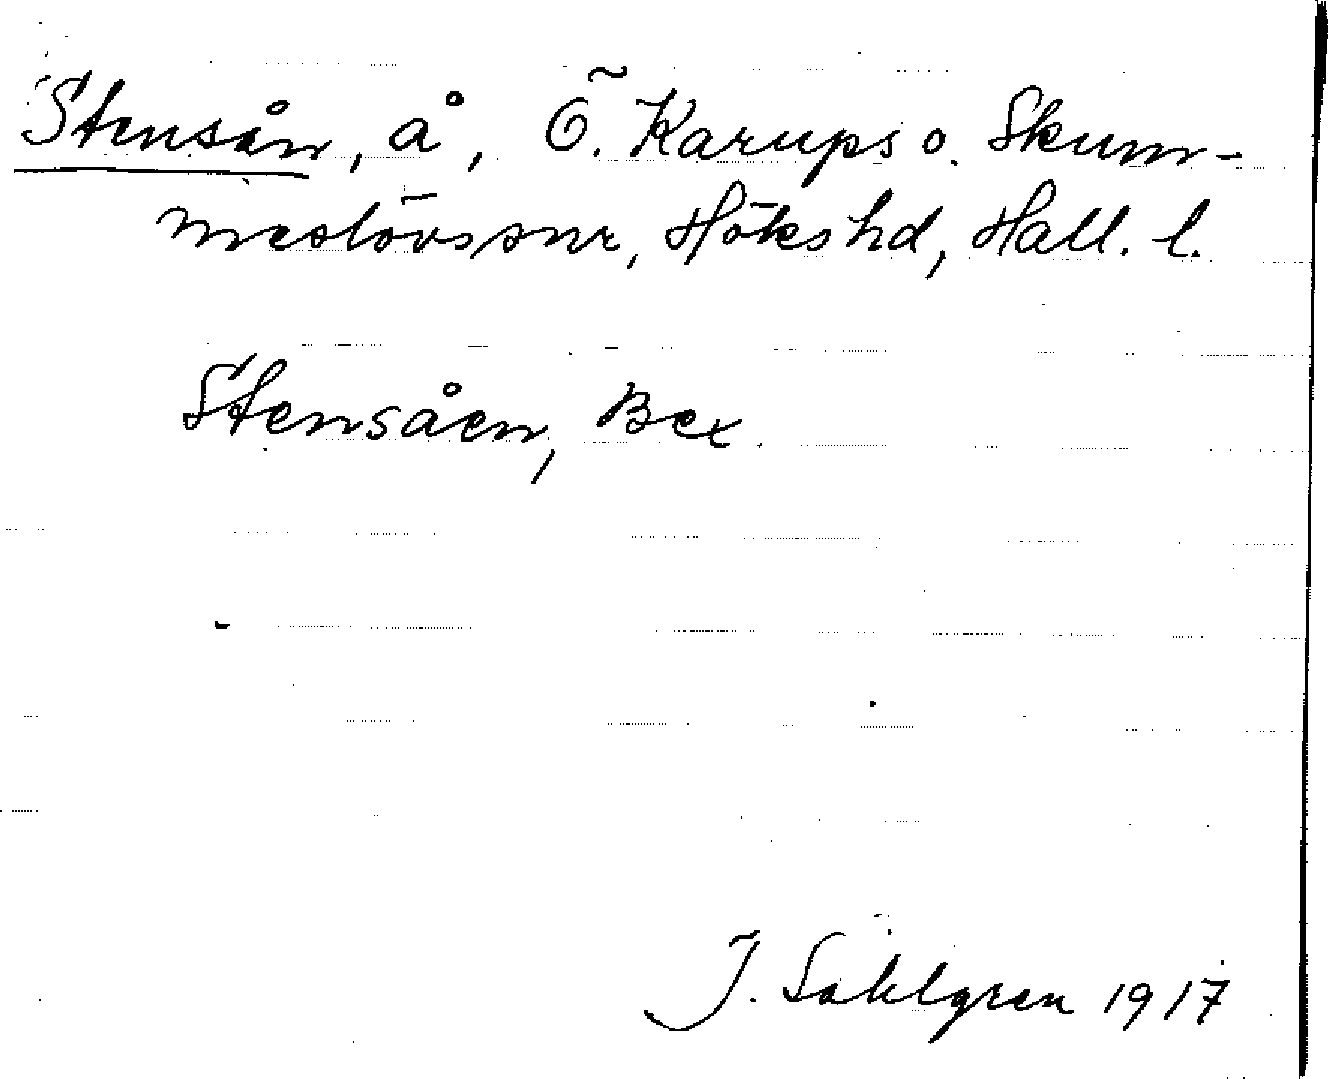 Stensån, å, Ö. Karups o. Skum-
meslövs snr, Höks hd, Hall. l.
Stensåen, Bex.
J. Sahlgren 1917